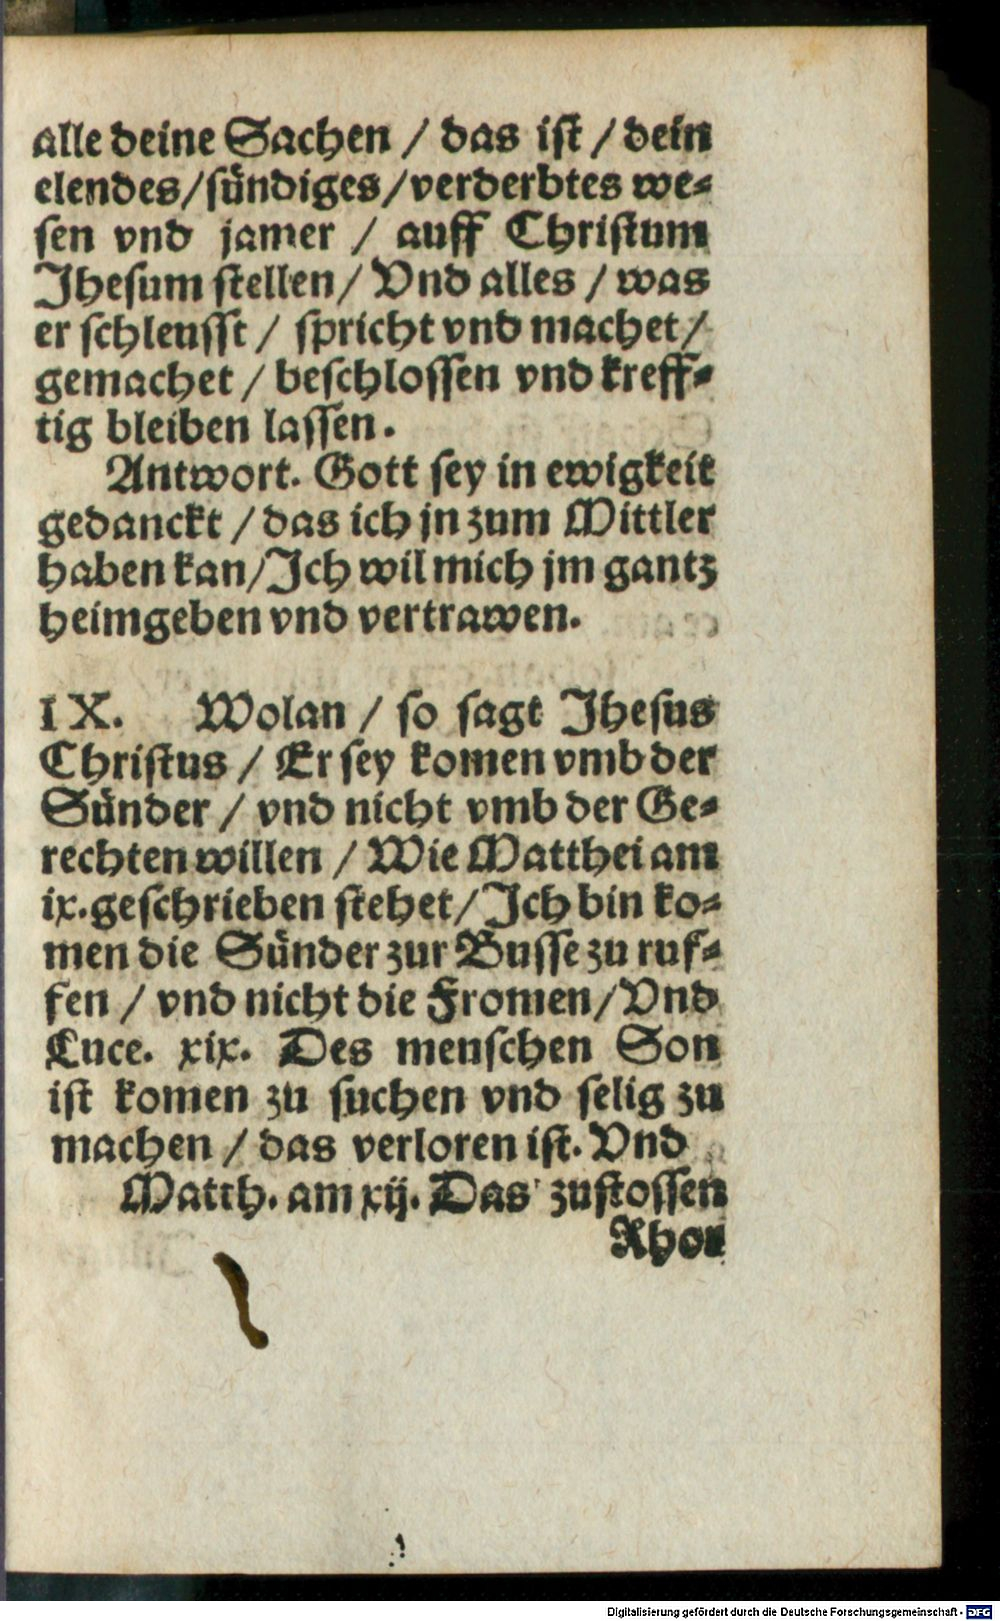 alle deine Sachen / das ist / dein
elendes/sündiges/verderbtes we-
sen vnd jamer / auff Christum
Jhesum stellen/ Vnd alles / was
er schleusst / spricht vnd machet/
gemachet / beschlossen vnd kreff-
tig bleiben lassen.
Antwort. Gott sey in ewigkeit
gedanckt / das ich jn zum Mittler
haben kan/Ich wil mich jm gantz
heimgeben vnd vertrawen.
IX. Wolan / so sagt Jhesus
Christus / Er sey komen vmb der
Sünder / vnd nicht vmb der Ge-
rechten willen / Wie Matthei am
ix. geschrieben stehet/Ich bin ko-
men die Sünder zur Busse zu ruf-
fen / vnd nicht die Fromen/Vnd
Luce. xix. Des menschen Son
ist komen zu suchen vnd selig zu
machen / das verloren ist. Vnd
Matth. am xij. Das zustossen
Rhor
Digitalisierung gefördert durch die Deutsche Forschungsgemeinschaft - DFG